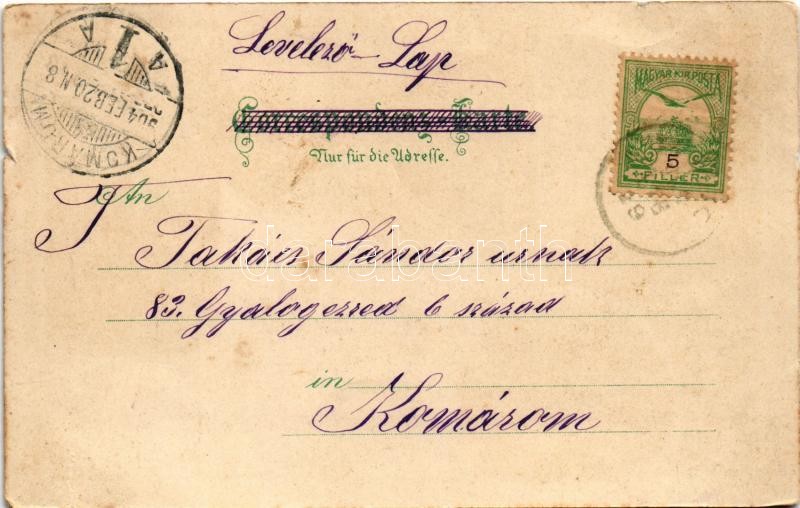 Levelező-Lap
Correspondenz-Karte.
Nur für die Adresse.
An
T
Takács Sándor urnak
83. Gyalogezred 6 század
in
Komárom
KOMÁROM
904 FEB 20 N. 8
4 1 A
MAGYAR KIR. POSTA
5
FILLÉR
darabanth